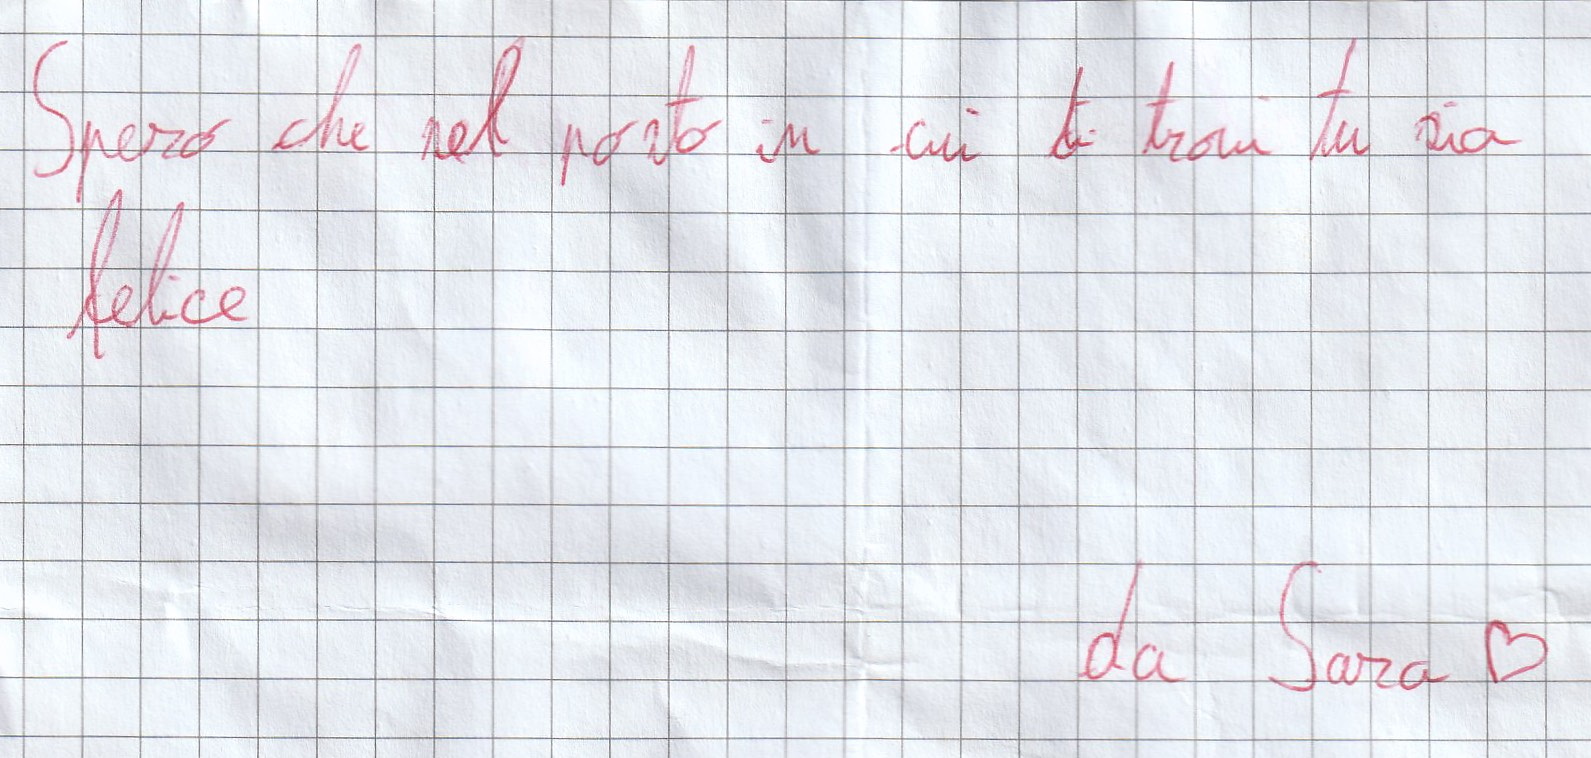 Spero che nel posto in cui ti trovi tu sia
felice
da Sara ♡